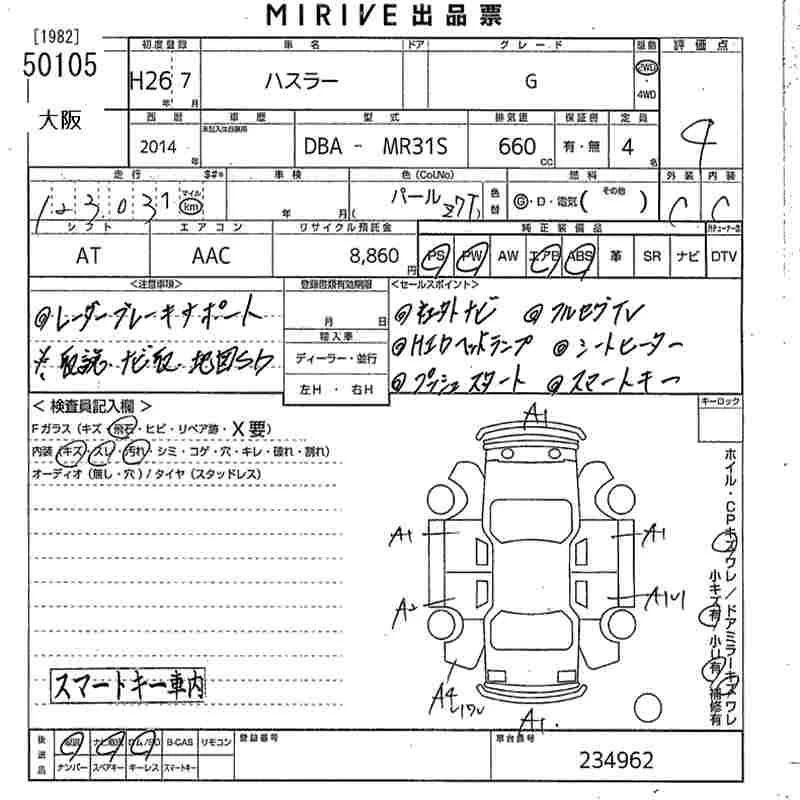 MIRIVE出品票
[1982]
50105
大阪
初度登録 車名 ドア グレード 駆動 評価点
H26 7 ハスラー G 2WD
年 月 ・4WD
4
西暦 車歴 型式 排気量 保証書 定員
2014 DBA - MR31S 660 有・無 4
年 CC 名
走行 車検 色(CoLNo) 燃料 外装 内装
123,031 マイル km 年 月( パール Z7T) 色替 G・D・電気( その他 ) C C
シフト エアコン リサイクル預託金 純正装備品
AT AAC 8,860円 PS PW AW エアB ABS 革 SR ナビ DTV
<注意事項> 登録書類有効期限 <セールスポイント>
◎レーダーブレーキサポート 月 日 ナビ ◎フルセグTV
輸入車
※取説・ナビ取 地図SD ディーラー・並行 ◎HIDヘッドランプ ◎シートヒーター
左H・右H ◎プッシュスタート ◎スマートキー
<検査員記入欄> キーロック
Fガラス(キズ・飛石・ヒビ・リペア跡・X要)
内装(キズ・スレ・汚れ・シミ・コゲ・穴・キレ・破れ・割れ)
オーディオ(無し・穴)/タイヤ(スタッドレス)
A1
A1 A1
A2 A1U1
A4
A1
ホイル・CPキズワレ/ドアミラーキズワレ
小キズ有/小U有/補修有
スマートキー車内
後送品 取説 ナビ取説 ロム/SD B-CAS リモコン 登録番号 車台番号
ナンバー スペアキー キーレス スマートキー 234962